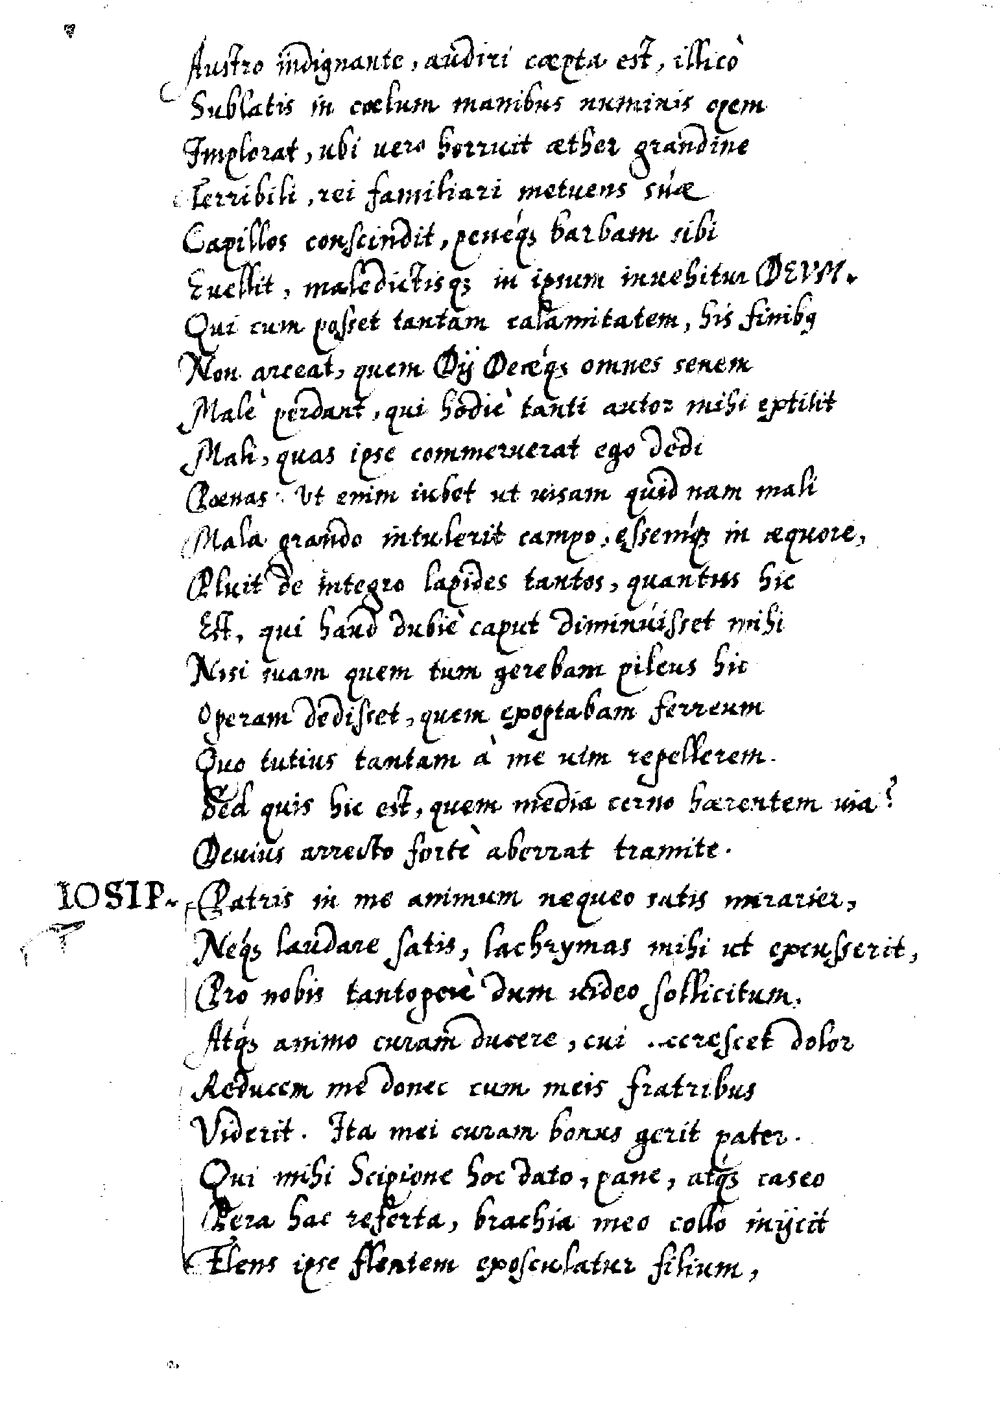 Austro indignante, audiri cæpta est, illicò
Sublatis in cœlum manibus numinis opem
Implorat, ubi vero horruit æther grandine
Terribili, rei familiari metuens suæ
Capillos conscindit, peneq́; barbam sibi
Euellit, maledictisq; in ipsum inuehitur DEVM.
Qui cum posset tantam calamitatem, his finibq
Non arceat, quem Dij Deæq́; omnes senem
Malè perdant, qui hodiè tanti autor mihi extitit
Mali, quas ipse commeruerat ego dedi
Pœnas. Vt enim iubet ut uisam quid nam mali
Mala grando intulerit campo, essemq́; in æquore,
Pluit de integro lapides tantos, quantus hic
Est, qui haud dubiè caput diminúisset mihi
Nisi suam quem tum gerebam pileus hic
Operam dedisset, quem exoptabam ferreum
Quo tutius tantam à me uim repellerem.
Sed quis hic est, quem media cerno hærentem uia?
Deuius arrecto fortè aberrat tramite.
IOSIP. Patris in me animum nequeo satis mirarier,
Neq́; laudare satis, lachrymas mihi ut excusserit,
Pro nobis tantoperè dum uideo sollicitum,
Atq́; animo curam ducere, cui ..crescet dolor
Reducem me donec cum meis fratribus
Viderit. Ita mei curam bonus gerit pater.
Qui mihi Scipione hoc dato, pane, atq́; caseo
Pera hac referta, brachia meo collo inijcit
Flens ipse flentem exosculatur filium,